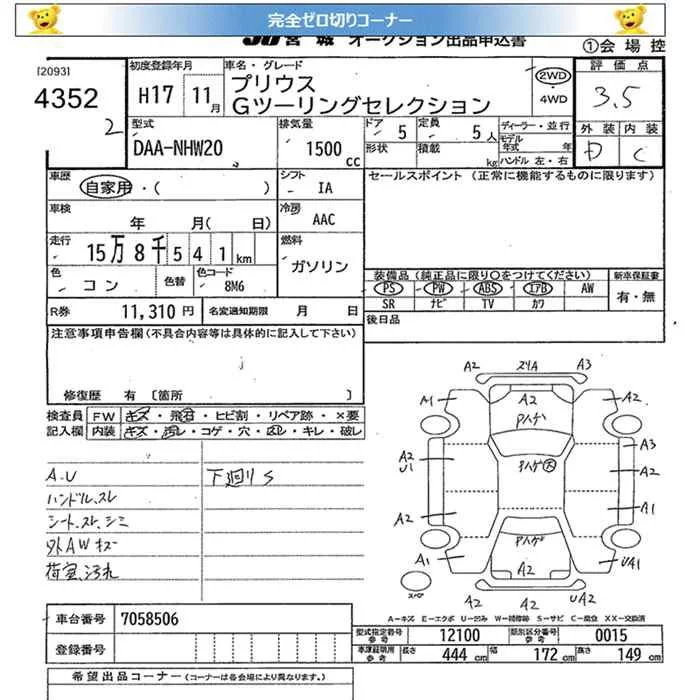 完全ゼロ切りコーナー
JU宮城 オークション出品申込書
①会場控
[2093]
4352
2
初度登録年月
H17 11月
車名・グレード
プリウス
Gツーリングセレクション
2WD
・4WD
評価点
3.5
外装 内装
D C
型式
DAA-NHW20
排気量
1500 cc
ドア 5
定員 5人
形状
積載 kg
ディーラー・並行
モデル年式 年
ハンドル 左・右
車歴
自家用・( )
シフト
IA
セールスポイント (正常に機能するものに限ります)
車検
年 月( 日)
冷房
AAC
走行
15万8千541km
燃料
ガソリン
色
コン
色替
色コード
8M6
装備品 (純正品に限り○をつけてください)
PS PW ABS エアB AW
SR ナビ TV カワ
新車保証書
有・無
R券 11,310円
名変通知期限 月 日
後日品
注意事項申告欄 (不具合内容等は具体的に記入して下さい)
修復歴 有 [箇所 ]
検査員 FW キズ・飛石・ヒビ割・リペア跡・×要
記入欄 内装 キズ・汚レ・コゲ・穴・凹レ・キレ・破レ
A.U
ハンドル、スレ
シート、スレ、シミ
外AWキズ
荷室、汚れ
下廻りS
A2 スリA A3
A1 A2 A2
Aハゲ
A3
A2
U1
Aハゲ 大
A2
A2 A1
Aハゲ
A1 A2 UA1
スペア
A2 A2 UA2
A=キズ E=エクボ U=凹み W=補修跡 S=サビ C=腐食 XX=交換済
車台番号 7058506
登録番号
型式指定番号 参考 12100
類別区分番号 参考 0015
車庫証明用 参考 長さ 444cm 幅 172cm 高さ 149cm
希望出品コーナー (コーナーは各会場により異なります。)